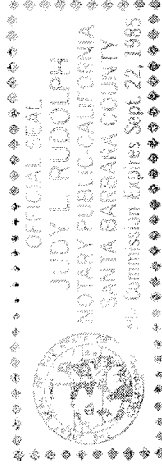 OFFICIAL SEAL
JUDY L. RUDOLPH
NOTARY PUBLIC-CALIFORNIA
SANTA BARBARA COUNTY
My Commission Expires Sept. 22, 1985